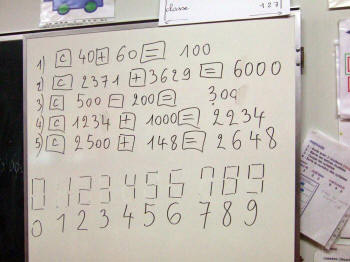 classe 127
1) C 40 + 60 = 100
2) C 2371 + 3629 = 6000
3) C 500 - 200 = 300
4) C 1234 + 1000 = 2234
5) C 2500 + 148 = 2648
0 1 2 3 4 5 6 7 8 9
0 1 2 3 4 5 6 7 8 9